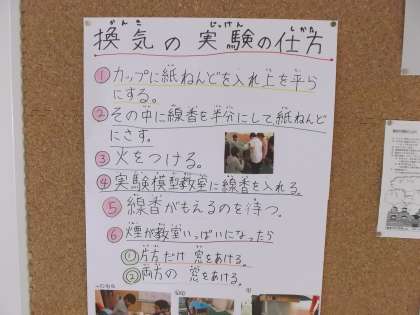 換気の実験の仕方
① カップに紙ねんどを入れ上を平ら
にする。
② その中に線香を半分にして紙ねんど
にさす。
③ 火をつける。
④ 実験模型教室に線香を入れる
⑤ 線香がもえるのを待つ。
⑥ 煙が教室いっぱいになったら
① 片方だけ 窓をあける。
② 両方の 窓をあける。